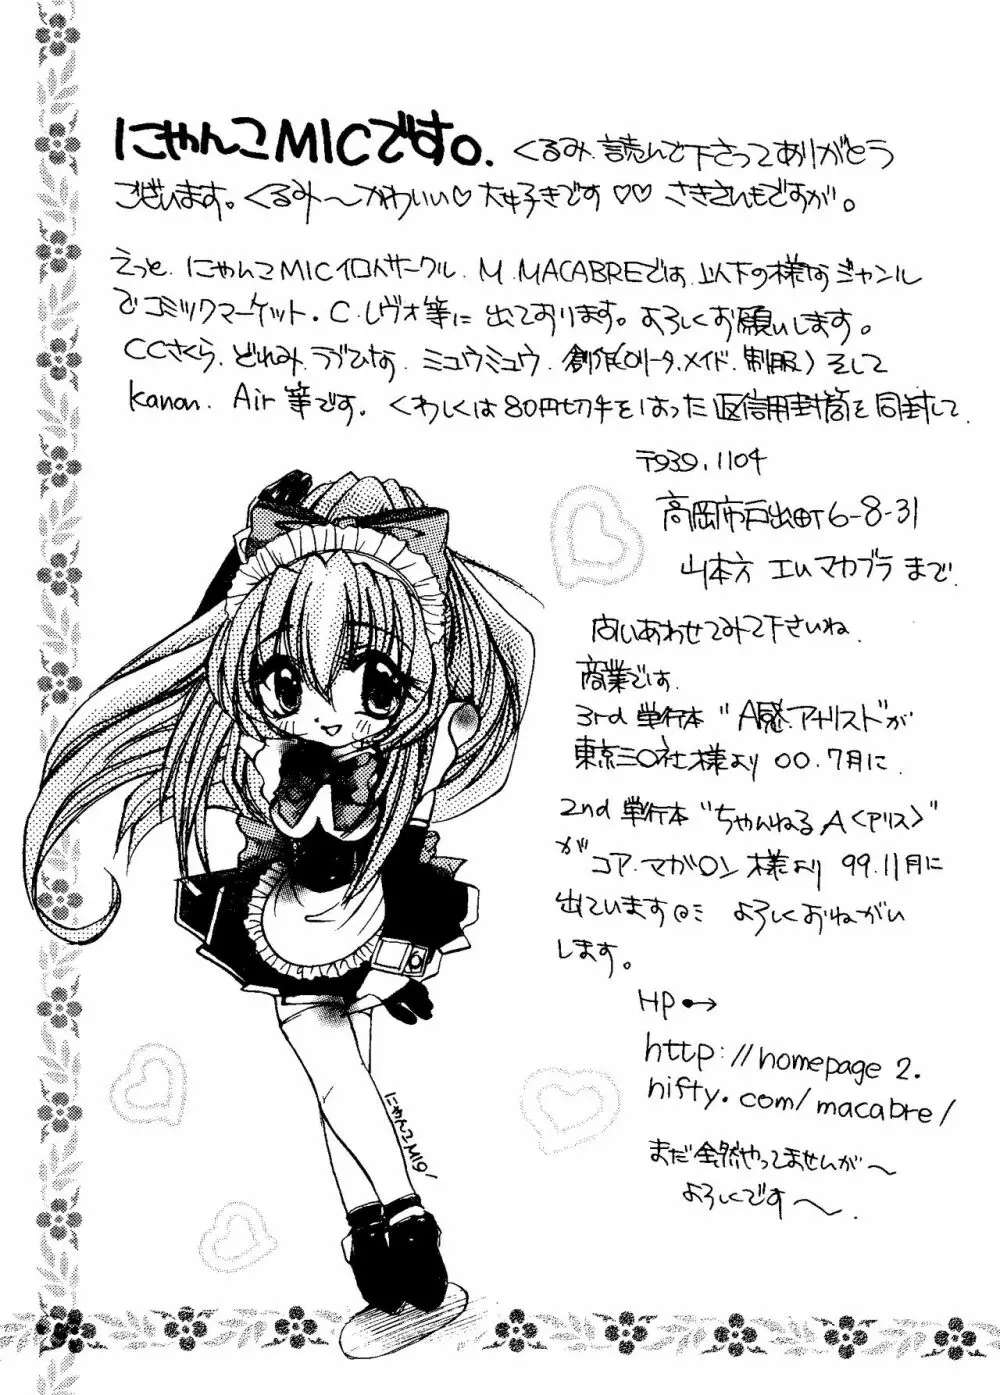 にゃんこMICです。くるみ、読んで下さってありがとう
ございます。くるみ〜かわいい♡大好きです♡♡さきさんもですが。
えっと、にゃんこMIC個人サークル、M.MACABREでは、以下の様なジャンル
でコミックマーケット・C.レヴォ等に出ております。よろしくお願いします。
CCさくら、どれみ、ラブひな、ミュウミュウ、創作(ロリータ、メイド、制服)そして
kanon、Air等です。くわしくは80円切手をはった返信用封筒を同封して、
〒939.1104
高岡市戸出町6-8-31
山本方 エムマカブラまで、
問いあわせてみて下さいね。
商業です。
3rd単行本"A感.アナリスト"が
東京三〇社様より00.7月に、
2nd単行本"ちゃんねるA<アリス>"
がコア.マガ〇ン様より99.11月に
出ています よろしくおねがい
します。
HP
http://homepage2.
nifty.com/macabre/
まだ全然やってませんが〜
よろしくです〜。
にゃんこMIC